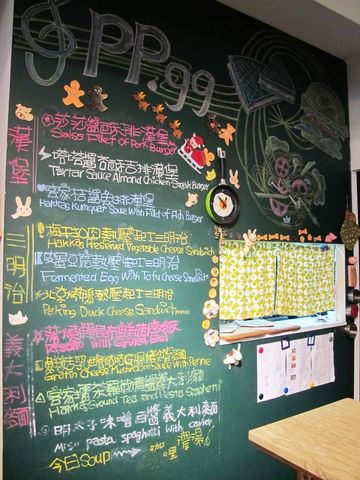 PP.99
漢堡
莎莎醬
豬排漢堡
Salsa Fillet of Pork Burger
塔塔醬杏仁吉排漢堡
Tartar Sauce Almond Chicken Steak Burger
客家桔醬魚排漢堡
Hakkas Kumquat Sauce With Fillet of Fish Burger
三明治
梅干扣肉熱壓起士三明治
Hakkas Preserved Vegetable Cheese Sandwich
熱壓起士三明治
Fermented Egg With Tofu Cheese Sandwich
北京烤鴨熱壓起士三明治
Peking Duck Cheese Sandwich
義大利麵
燉飯
Risotto With Grilled Eel
Gratin Cheese Mushroom Sauce With Penne
客家擂茶
義大利麵
Hakka Ground Tea and Pesto Spaghetti
明太子味噌白醬義大利麵
Miso pasta spaghetti with caviar
今日Soup 咖哩濃湯